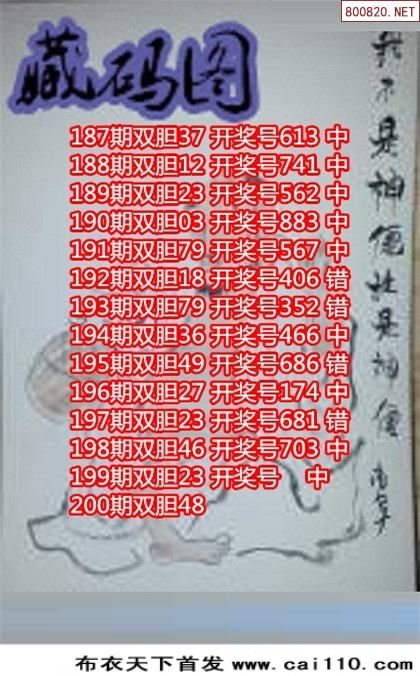 800820.NET
藏码图
187期双胆37 开奖号613 中
188期双胆12 开奖号741 中
189期双胆23 开奖号562 中
190期双胆03 开奖号883 中
191期双胆79 开奖号567 中
192期双胆18 开奖号406 错
193期双胆79 开奖号352 错
194期双胆36 开奖号466 中
195期双胆49 开奖号686 错
196期双胆27 开奖号174 中
197期双胆23 开奖号681 错
198期双胆46 开奖号703 中
199期双胆23 开奖号 中
200期双胆48
我不是神儍就是神儍
布衣天下首发 www.cai110.com